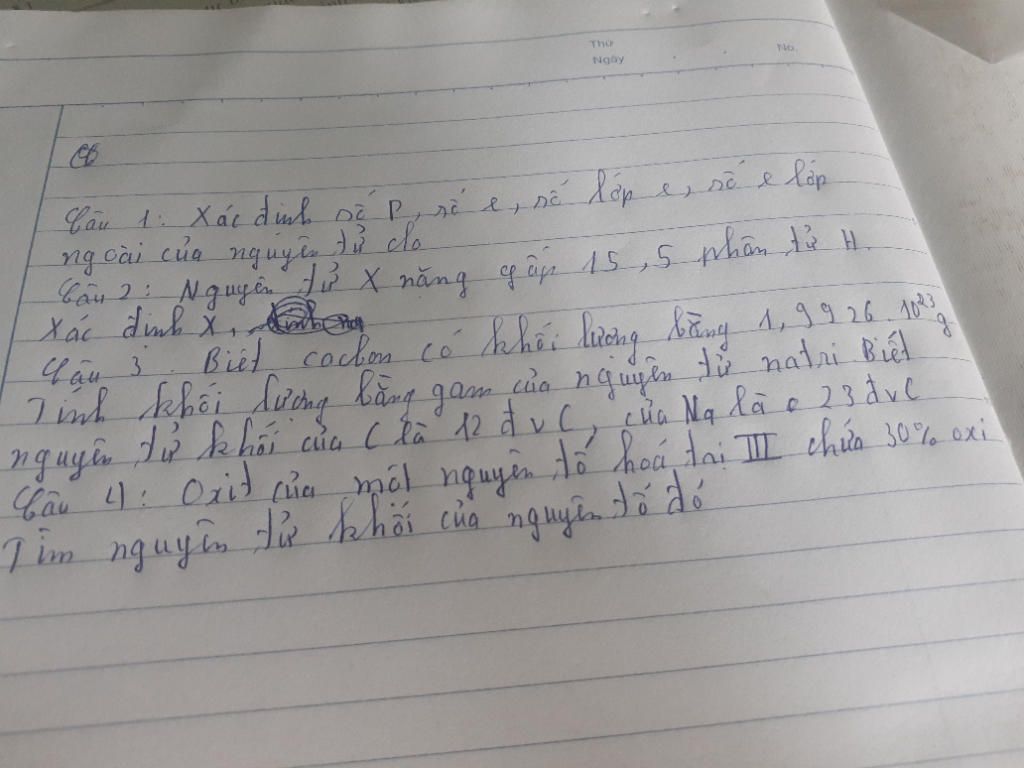 Thứ
No.
Ngày
Câu 1: Xác định số P, số e, số lớp e, số e lớp
ngoài của nguyên tử clo
Câu 2: Nguyên tử X nặng gấp 15,5 phân tử H.
Xác định X,
Câu 3. Biết cacbon có khối lượng bằng 1,9926.10²³g
Tính khối lượng bằng gam của nguyên tử natri Biết
nguyên tử khối của C là 12 đvC, của Na là 23 đvC
Câu 4: Oxit của một nguyên tố hoá trị III chứa 30% oxi
Tìm nguyên tử khối của nguyên tố đó